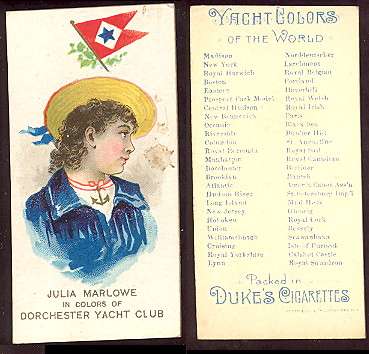 JULIA MARLOWE
IN COLORS OF
DORCHESTER YACHT CLUB
YACHT COLORS
OF THE WORLD
Madison
New York
Royal Harwich
Boston
Eastern
Prospect Park Model
Central Hudson
New Brunswick
Oceanic
Riverside
Columbia
Royal Exmouth
Manhattan
Dorchester
Brooklyn
Atlantic
Hudson River
Long Island
New Jersey
Hoboken
Union
Williamsburgh
Cruising
Royal Yorkshire
Lynn
Norddeutscher
Larchmont
Royal Belgian
Portland
Haverhill
Royal Welsh
Royal Irish
Paris
Black Sea
Bunker Hill
St. Augustine
Royal
Royal Canadian
Berliner
Danish
Amer'n Canoe Ass'n
St. Petersburg Imp'l
Mud Hook
Royal Cork
Beverly
Seawanhaka
Isle of Purnock
Calshot Castle
Royal Squadron
Packed in
DUKE'S CIGARETTES